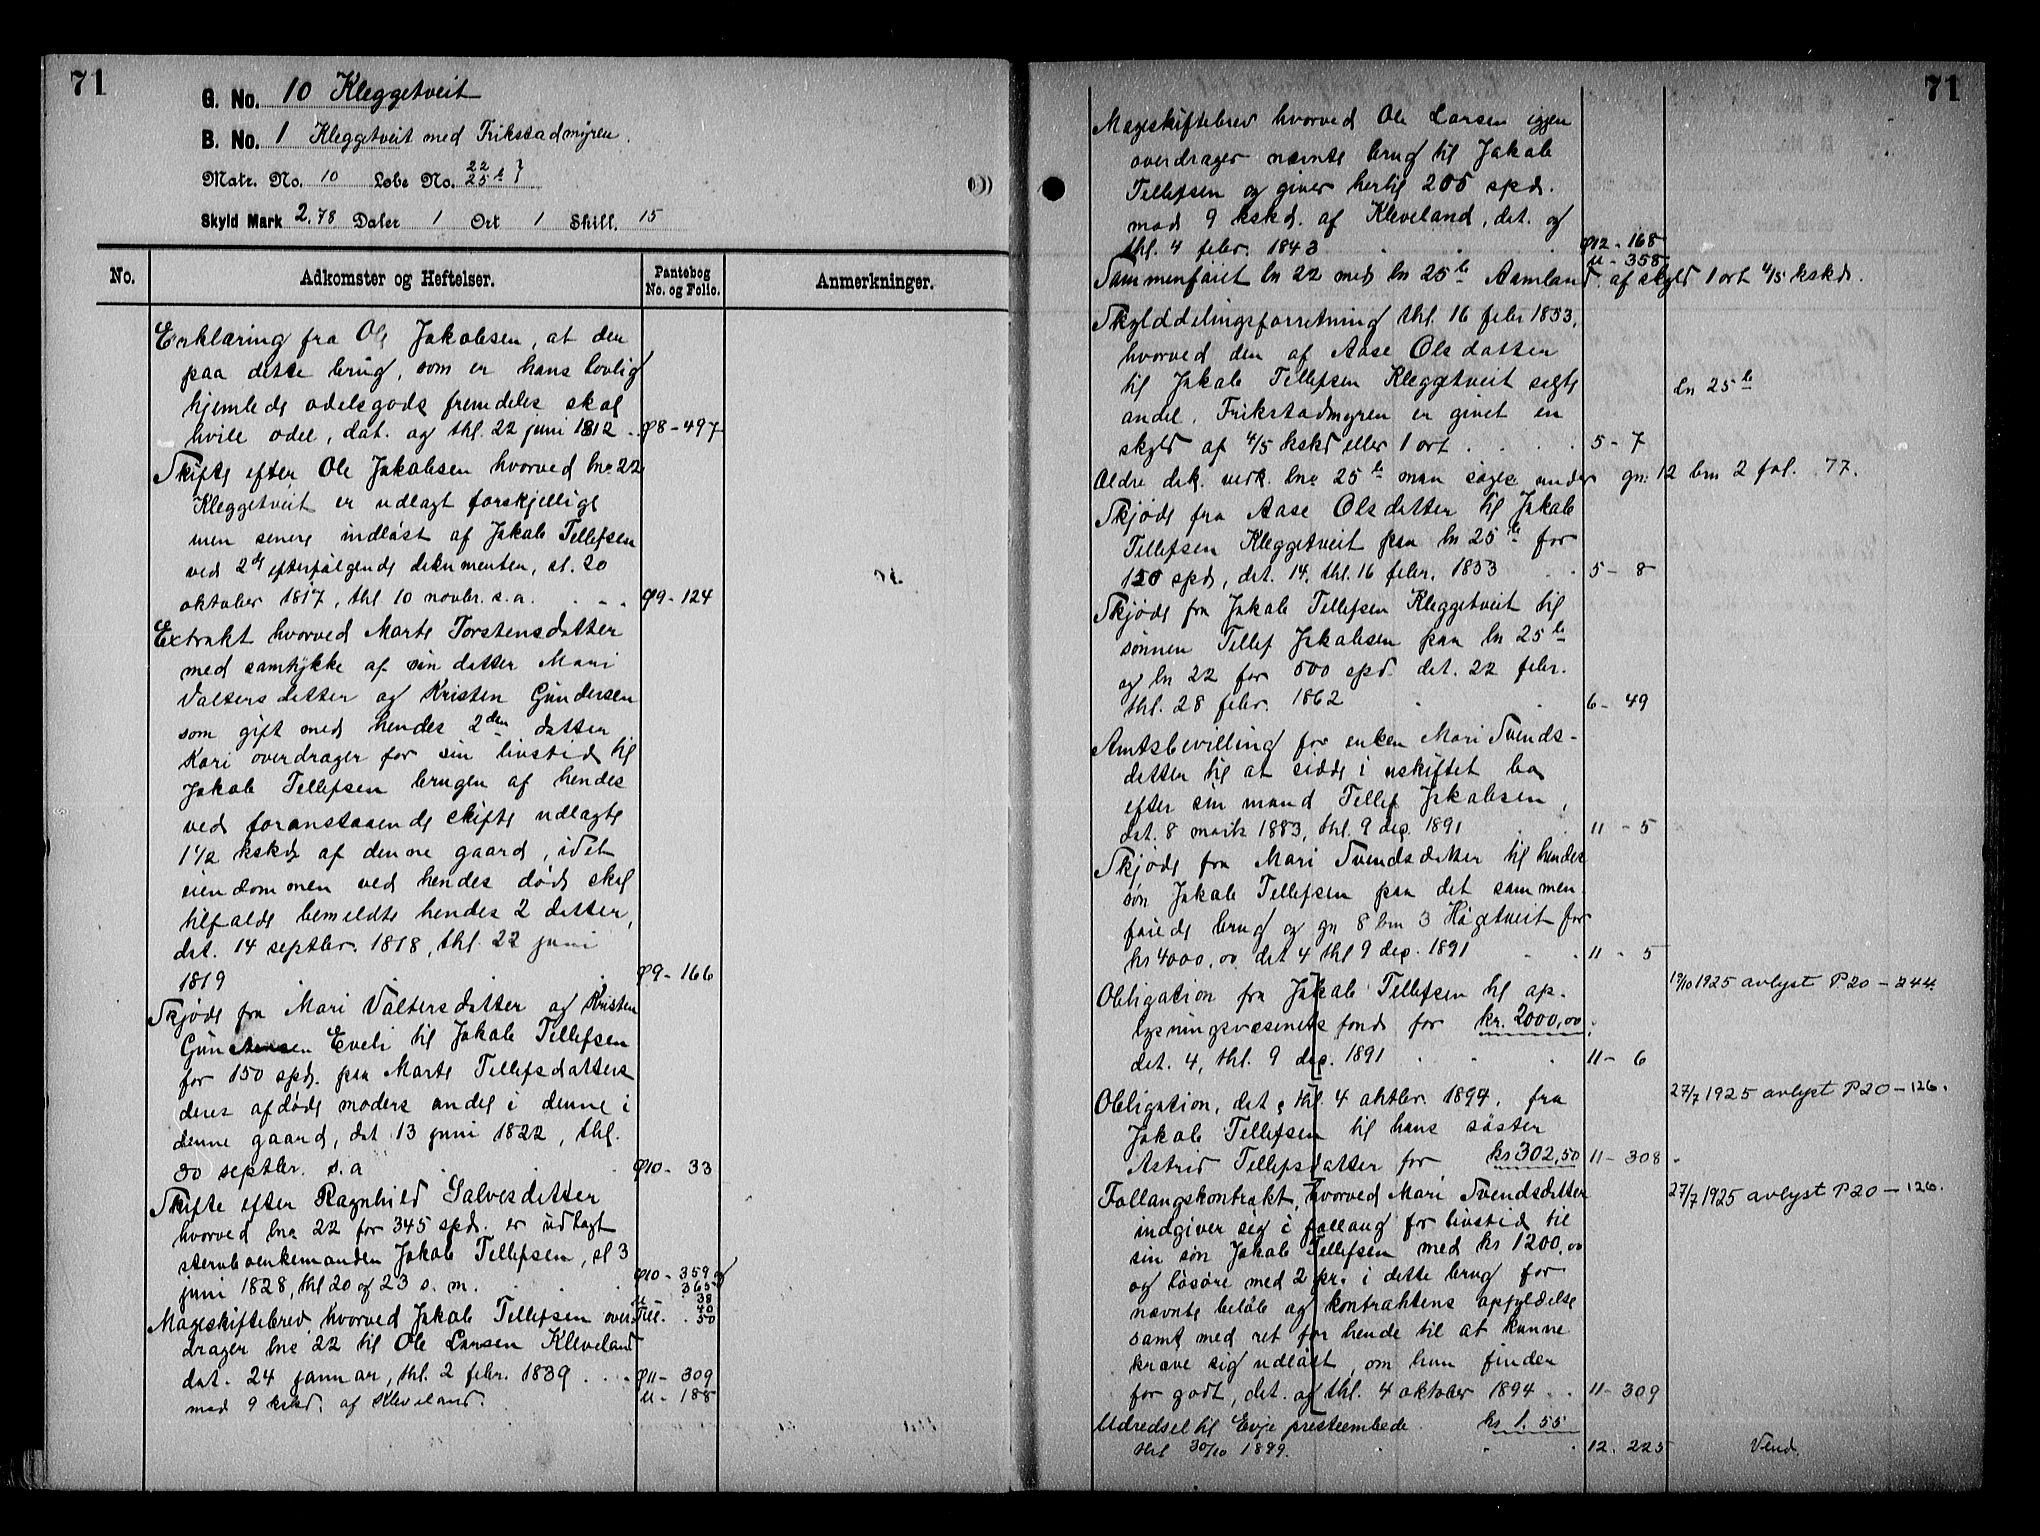 71
G. No. 10 Kleggetveit
B. No. 1 Kleggetveit med Trikstadmyren.
Matr. No. 10 Løbe No. 22 25 b
Skyld Mark 2.78 Daler 1 Ort 1 Skill. 15
No. Adkomster og Heftelser. Pantebog No. og Folio. Anmerkninger.
Erklæring fra Ole Jakobsen, at den
paa dette brug, som er hans lovlig
hjemlede odelsgods fremdeles skal
hvile odel, dat. og thl. 22 juni 1812 . φ8 - 497
Skifte efter Ole Jakobsen hvorved lnr 22
Kleggetveit er udlagt forskjellige
men senere indløst af Jakob Tellefsen
ved 2de efterfølgende dokumenter, sl. 20
oktober 1817, thl 10 novbr. s.a. . . . φ9 - 124
Extrakt hvorved Marte Torstensdatter
med samtykke af sin datter Mari
Valtersdatter og Kristen Gundersen
som gift med hendes 2den datter
Kari overdrager for sin livstid til
Jakob Tellefsen brugen af hendes
ved foranstaaende skifte udlagte
1 1/2 kskd af denne gaard, idet
eiendommen ved hendes død skal
tilfalde bemeldte hendes 2 døtter,
dat. 14 septbr. 1818, thl. 22 juni
1819 . φ9 - 166
Skjøde fra Mari Valtersdatter og Kristen
Gundersen Evebi til Jakob Tellefsen
for 150 spd. paa Marte Tellefsdatters
deres afdøde moders andel i denne i
denne gaard, dat 13 juni 1822, thl.
30 septbr. s.a . φ10 - 33
Skifte efter Ragnhild Salvesdatter
hvorved lnr 22 for 345 spd. er udlagt
sterboenkemanden Jakob Tellefsen, sl 3
juni 1828, thl 20 og 23 s. m. . . φ10 - 359 og
365
u - 38
40
Mageskiftebrev, hvorved Jakob Tellefsen over- Till. . 50
drager lnr 22 til Ole Larsen Kleveland
dat. 24 januar, thl. 2 febr. 1839 . . . φ11 - 309
mod 9 kskd. af Kleveland. u - 188
71
Mageskiftebrev hvorved Ole Larsen igjen
overdrager nævnte brug til Jakob
Tellefsen og giver hertil 200 spd.
mod 9 kskd. af Kleveland, dat. og
thl. 4 febr. 1843 . . . φ12 - 168
u - 358
Sammenføiet ln 22 med ln 25 b Aamland af skyld 1 ort 4/5 kskd.
Skylddelingsforretning thl. 16 febr 1853,
hvorved den af Aase Olsdatter
til Jakob Tellefsen Kleggetveit solgte ln 25 b
andel. Trikstadmyren er givet en
skyld af 4/5 kskd eller 1 ort . . . . 5 - 7
Ældre dok. vedk. lnr 25 b man søges under gn. 12 bnr 2 fol. 77.
Skjøde fra Aase Olsdatter til Jakob
Tellefsen Kleggetveit paa ln 25 b for
150 spd, dat. 14, thl. 16 febr. 1853 . . 5 - 8
Skjøde fra Jakob Tellefsen Kleggetveit til
sønnen Tellef Jakobsen paa ln 25 b
og ln 22 for 500 spd. dat. 22 febr.
thl. 28 febr. 1862 . . 6 - 49
Amtsbevilling for enken Mari Svends-
datter til at sidde i uskiftet bo
efter sin mand Tellef Jakobsen,
dat. 8 marts 1883, thl. 9 dec. 1891 . . 11 - 5
Skjøde fra Mari Svendsdatter til hendes
søn Jakob Tellefsen paa det sammen-
føiede brug og gn 8 bnr 3 Høgetveit for
kr 4000,00 dat 4 thl 9 dec. 1891 . . 11 - 5
Obligation fra Jakob Tellefsen til op- 19/10 1925 avlyst P20 - 244.
lysningsvæsenets fond for kr. 2000,00.
dat. 4, thl. 9 dec. 1891 . . . 11 - 6
Obligation, dat. & thl 4 oktbr. 1894, fra 27/7 1925 avlyst P20 - 126.
Jakob Tellefsen til hans søster
Astrid Tellefsdatter for kr 302,50 11 - 308 .
Follaugskontrakt, hvorved Mari Svendsdatter 27/7 1925 avlyst P20 - 126.
indgiver sig i follaug for livstid til
sin søn Jakob Tellefsen med kr 1200,00
og løsøre med 2 pr. i dette brug for
nævnte beløb og kontraktens opfyldelse
samt med ret for hende til at kunne
kræve sig udløst, om hun finder
for godt, dat. og thl. 4 oktober 1894 . . 11 - 309
Udredsel til Evje presteembede kr 1.55
thl 30/10 1899. . . . 12. 225 Vend.